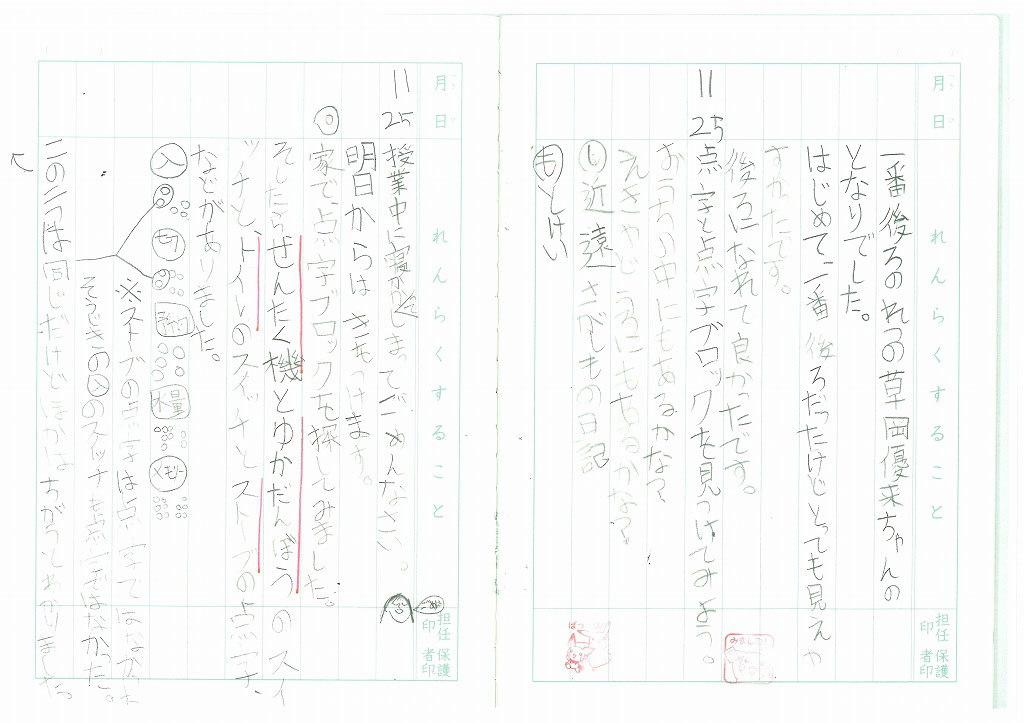 れんらくすること
月
日
一番後ろのれつの草岡優来ちゃんの
となりでした。
はじめて一番後ろだったけどとっても見えや
すかったです。
後ろになれて良かったです。
11
25
点字と点字ブロックを見つけてみよう。
おうちの中にもあるかな?
えきやどうろにもあるかな?
し 近遠さがしもの日記
も とけい
担任印
保護者印
みました
れんらくすること
月
日
11
25
授業中に寝てしまってごめんなさい。
明日からは きをつけます。
家で点字ブロックを探してみました。
そしたらせんたく機とゆかだんぼうのスイ
ッチと、トイレのスイッチとストーブの点字、
などがありました。
入
切
予約
水量
メモリー
※ストーブの点字は点字ではなかった
そうじきの入のスイッチも点字ではなかった。
この二つは同じだけどほかはちがうとわかりました。
担任印
保護者印